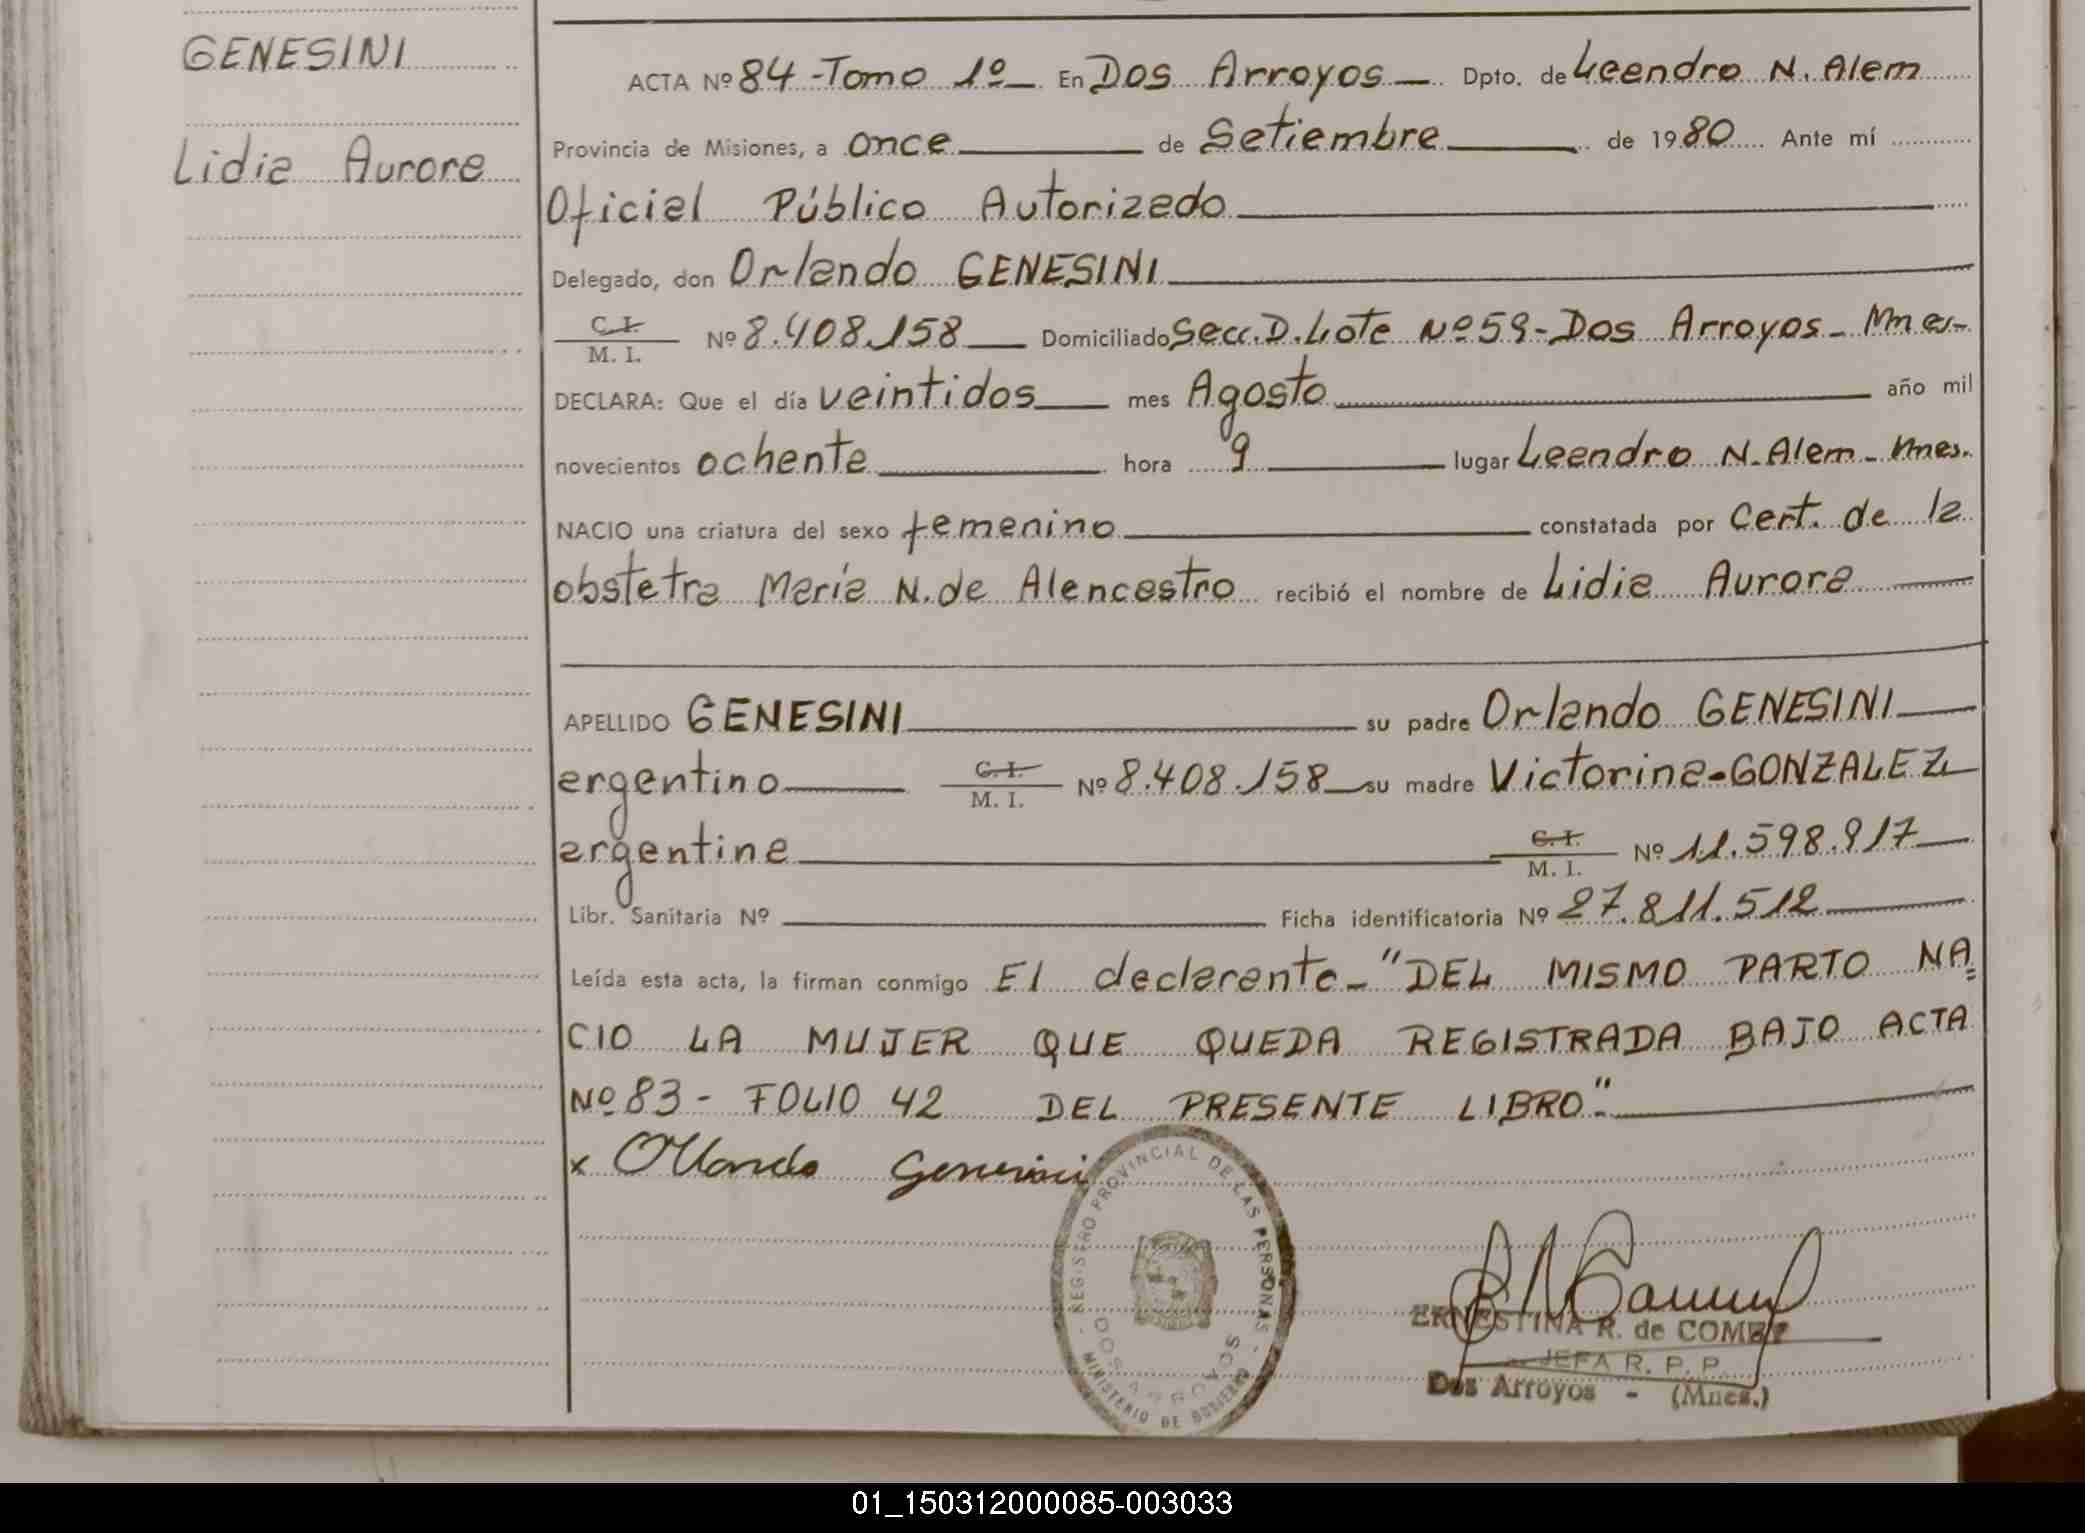 GENESINI
Lidia Aurora
ACTA Nº 84 - Tomo 1º En Dos Arroyos Dpto. de Leandro N. Alem
Provincia de Misiones, a once de Setiembre de 1980 Ante mí
Oficial Público Autorizado
Delegado, don Orlando GENESINI
C. I.
M. I. Nº 8.408.158 Domiciliado Secc. D. Lote Nº 59 - Dos Arroyos - Mnes-
DECLARA: Que el día veintidos mes Agosto año mil
novecientos ochenta hora 9 lugar Leandro N. Alem - Mnes.
NACIO una criatura del sexo femenino constatada por Cert. de la
obstetra María N. de Alencastro recibió el nombre de Lidia Aurora
APELLIDO GENESINI su padre Orlando GENESINI
argentino C. I. M. I. Nº 8.408.158 su madre Victorina - GONZALEZ
argentina C. I. M. I. Nº 11.598.917
Libr. Sanitaria Nº Ficha identificatoria Nº 27.811.512
Leída esta acta, la firman conmigo El declarante - "DEL MISMO PARTO NA=
CIO LA MUJER QUE QUEDA REGISTRADA BAJO ACTA
Nº 83 - FOLIO 42 DEL PRESENTE LIBRO".
x Orlando Genesini
REGISTRO PROVINCIAL DE LAS PERSONAS - MINISTERIO DE GOBIERNO -
DOS ARROYOS
ERNESTINA R. de
JEFA R. P. P.
Dos Arroyos - (Mnes.)
01_150312000085-003033